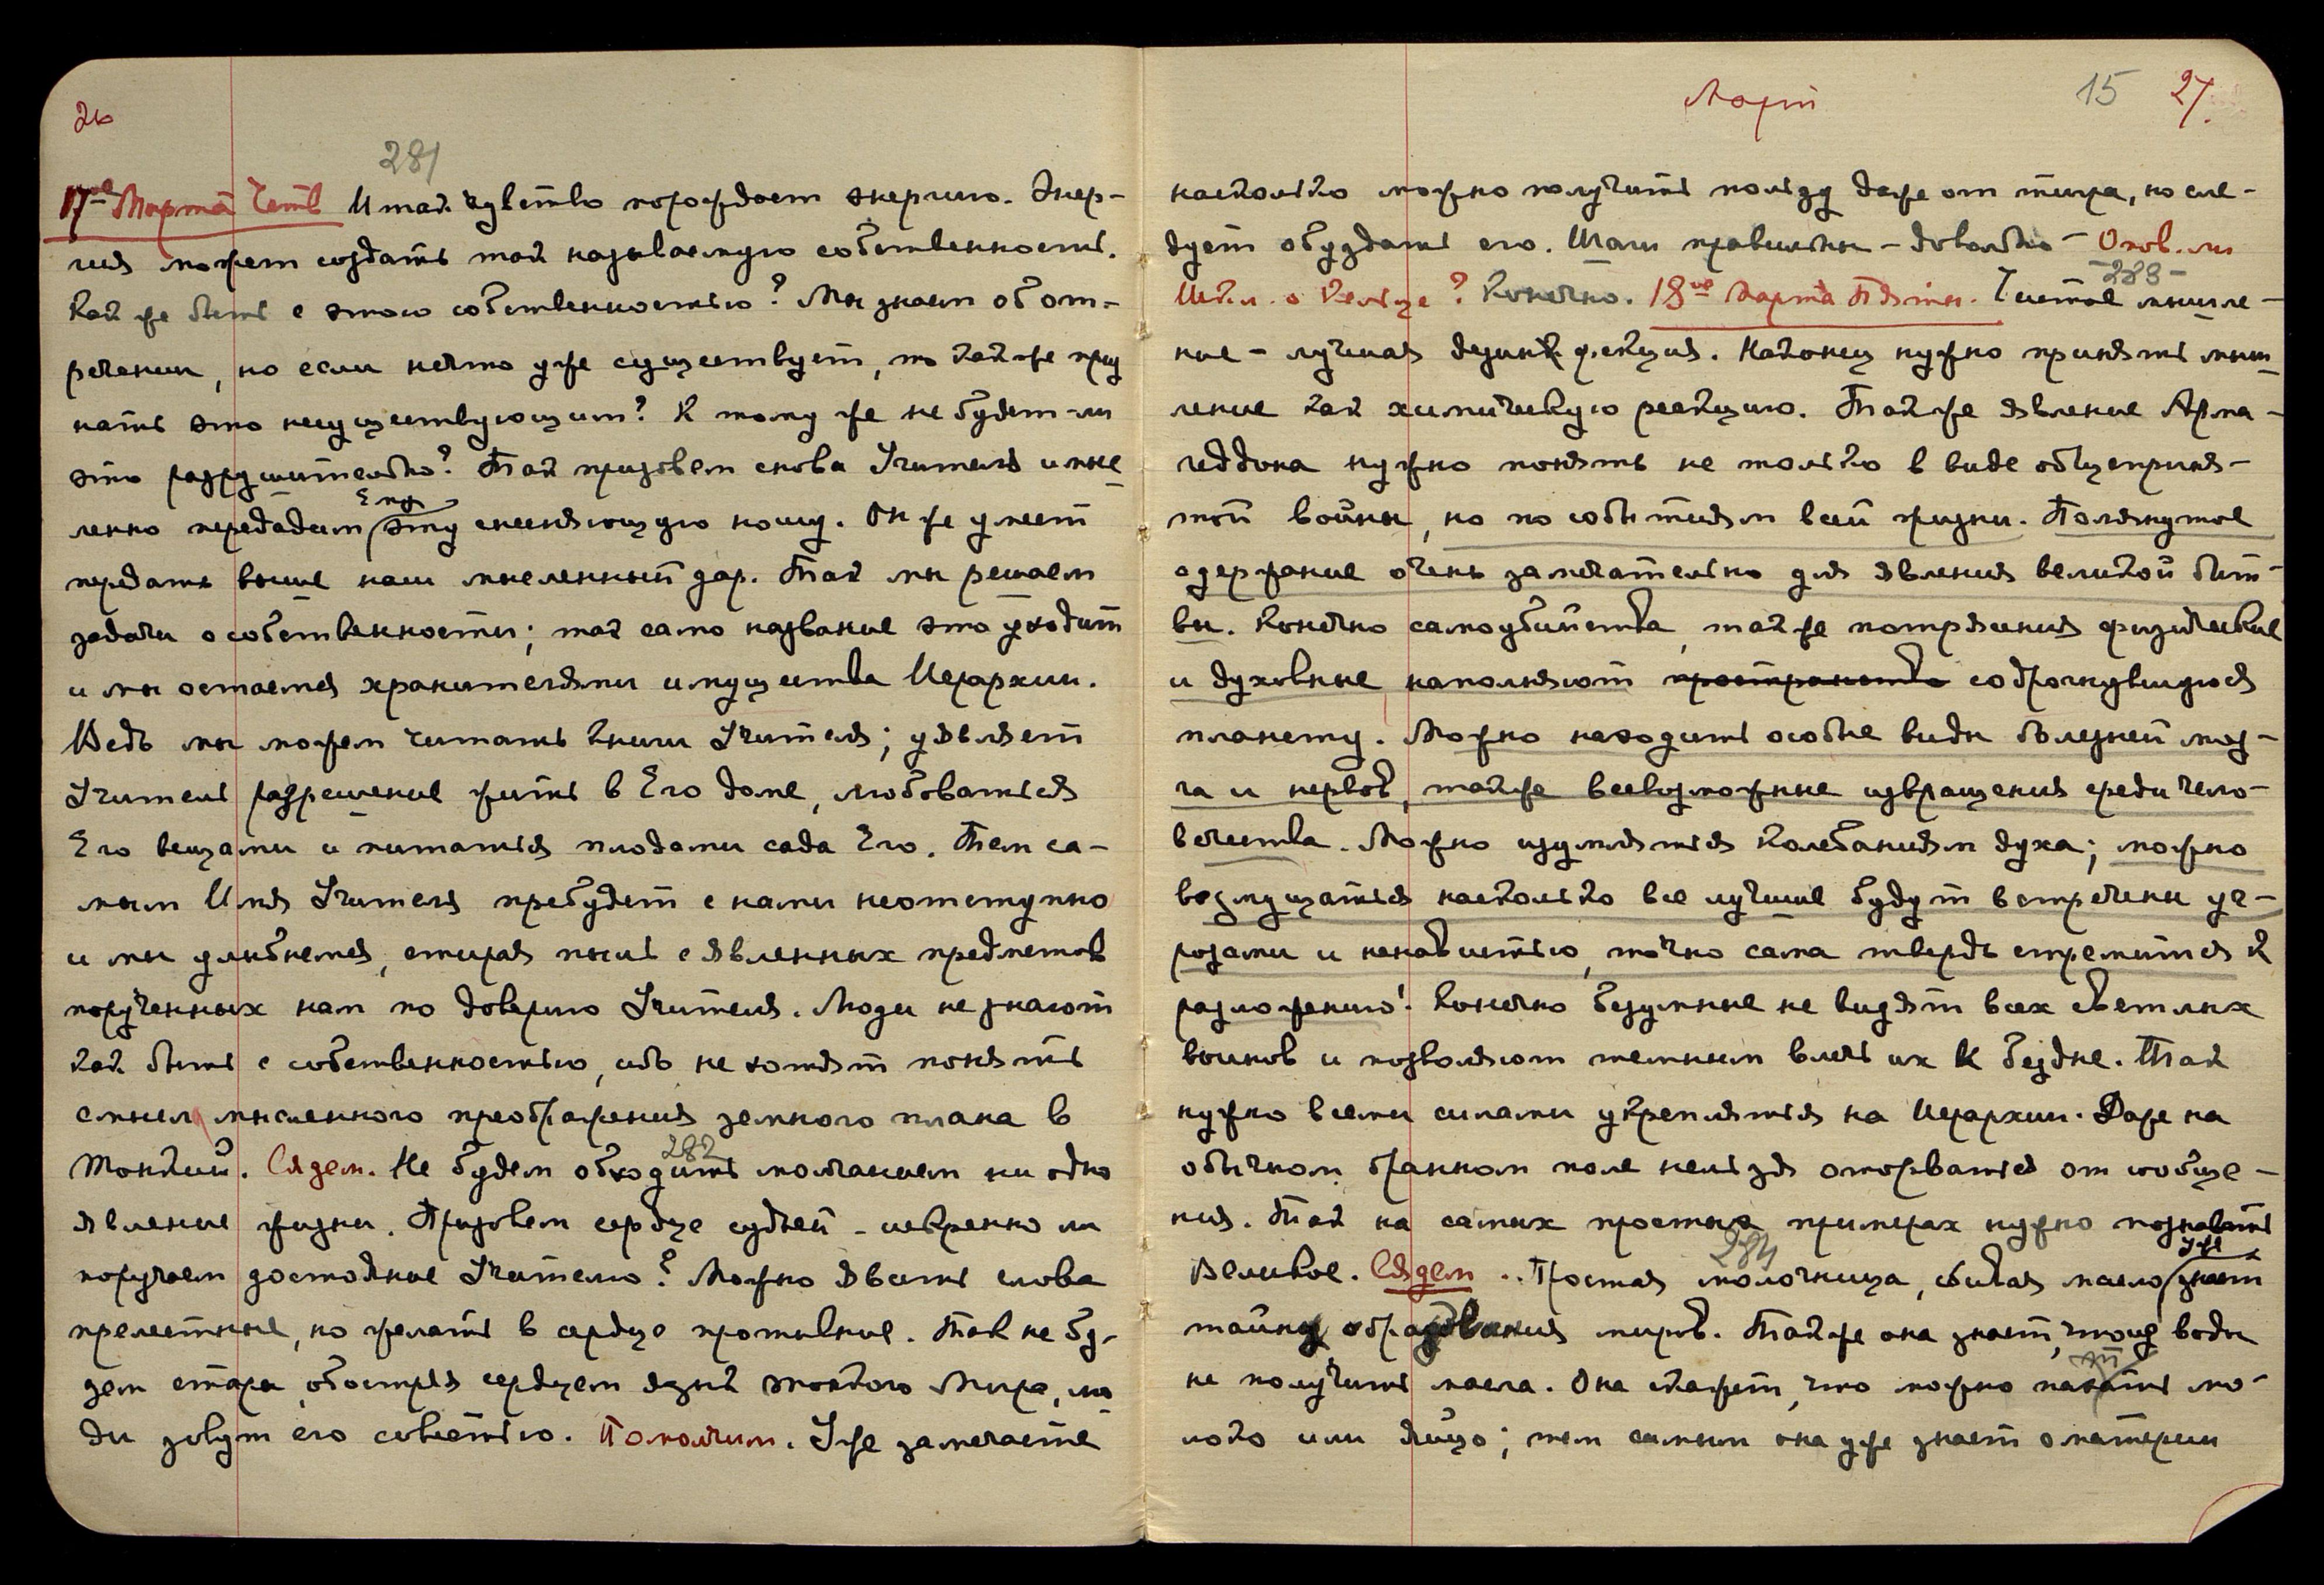 26
281
17ое Марта Четв Итак чувство порождает энергию. Энер-
гия может создать так называемую собственность.
Как же быть с этою собственностью? Мы знаем об от-
речении, но если нечто уже существует, то как же приз
нать это несуществующим? К тому же не будет-ли
это разрушительно? Так призовем снова Учителя и мыс
Ему
ленно передадим эту стесняющую ношу. Он же умеет
передать выше наш мысленный дар. Так мы решаем
задачи о собственности; так само название это уходит
и мы остаемся хранителями имущества Иерархии.
Ведь мы можем читать книги Учителя; уявляет
Учитель разрешение жить в Его доме, любоваться
Его вещами и питаться плодами сада Его. Тем са-
мым Имя Учителя пребудет с нами неотступно
и мы улыбнемся, стирая пыль с явленных предметов
порученных нам по доверию Учителя. Люди не знают
как быть с собственностью, ибо не хотят понять
смысл мысленного преображения земного плана в
Тонкий. Сядем. Не будем обходить молчанием ни одно
282
явление жизни. Призовем сердце судьей - искренно ли
поручаем достояние Учителю? Можно явить слова
прелестные, но желать в сердце противное. Так не бу-
дем стары, обостряя сердцем язык Тонкого Мира, лю
ди зовут его совестью. Помолчим. Уже замечаете
Март
15 27.
насколько можно получить пользу даже от тигра, но сле-
дует обуздать его. Шаги правильны - довольно -
283
о Кельце? Конечно. 18ое Марта Пятн. Чистое мышле-
ние - лучшая дезинфекция. Наконец нужно принять мыш
ление как химическую реакцию. Также явление Арма-
геддона нужно понять не только в виде общеприня-
той войны, но по событиям всей жизни. Помянутое
одержание очень замечательно для явления великой бит-
вы. Конечно самоубийства, также потрясения физические
и духовные наполняют пространство содрогнувшуюся
планету. Можно находить особые виды болезней моз-
га и нервов, также всевозможные извращения среди чело-
вечества. Можно изумляться колебаниям духа; можно
возмущаться насколько все лучшие будут встречены уг-
розами и ненавистью, точно сама твердь стремится к
разложению! Конечно безумные не видят всех светлых
воинов и позволяют темным влечь их к бездне. Так
нужно всеми силами укрепляться на Иерархии. Даже на
обычном бранном поле нельзя оторваться от сообще-
ния. Так на самых простых примерах нужно познавать
284
уже
Великое. Сядем. Простая молочница, сбивая масло знает
тайну образования миров. Также она знает, что из воды
не получить масла. Она скажет, что можно мо-
локо или яйцо; тем самым она уже знает о материи